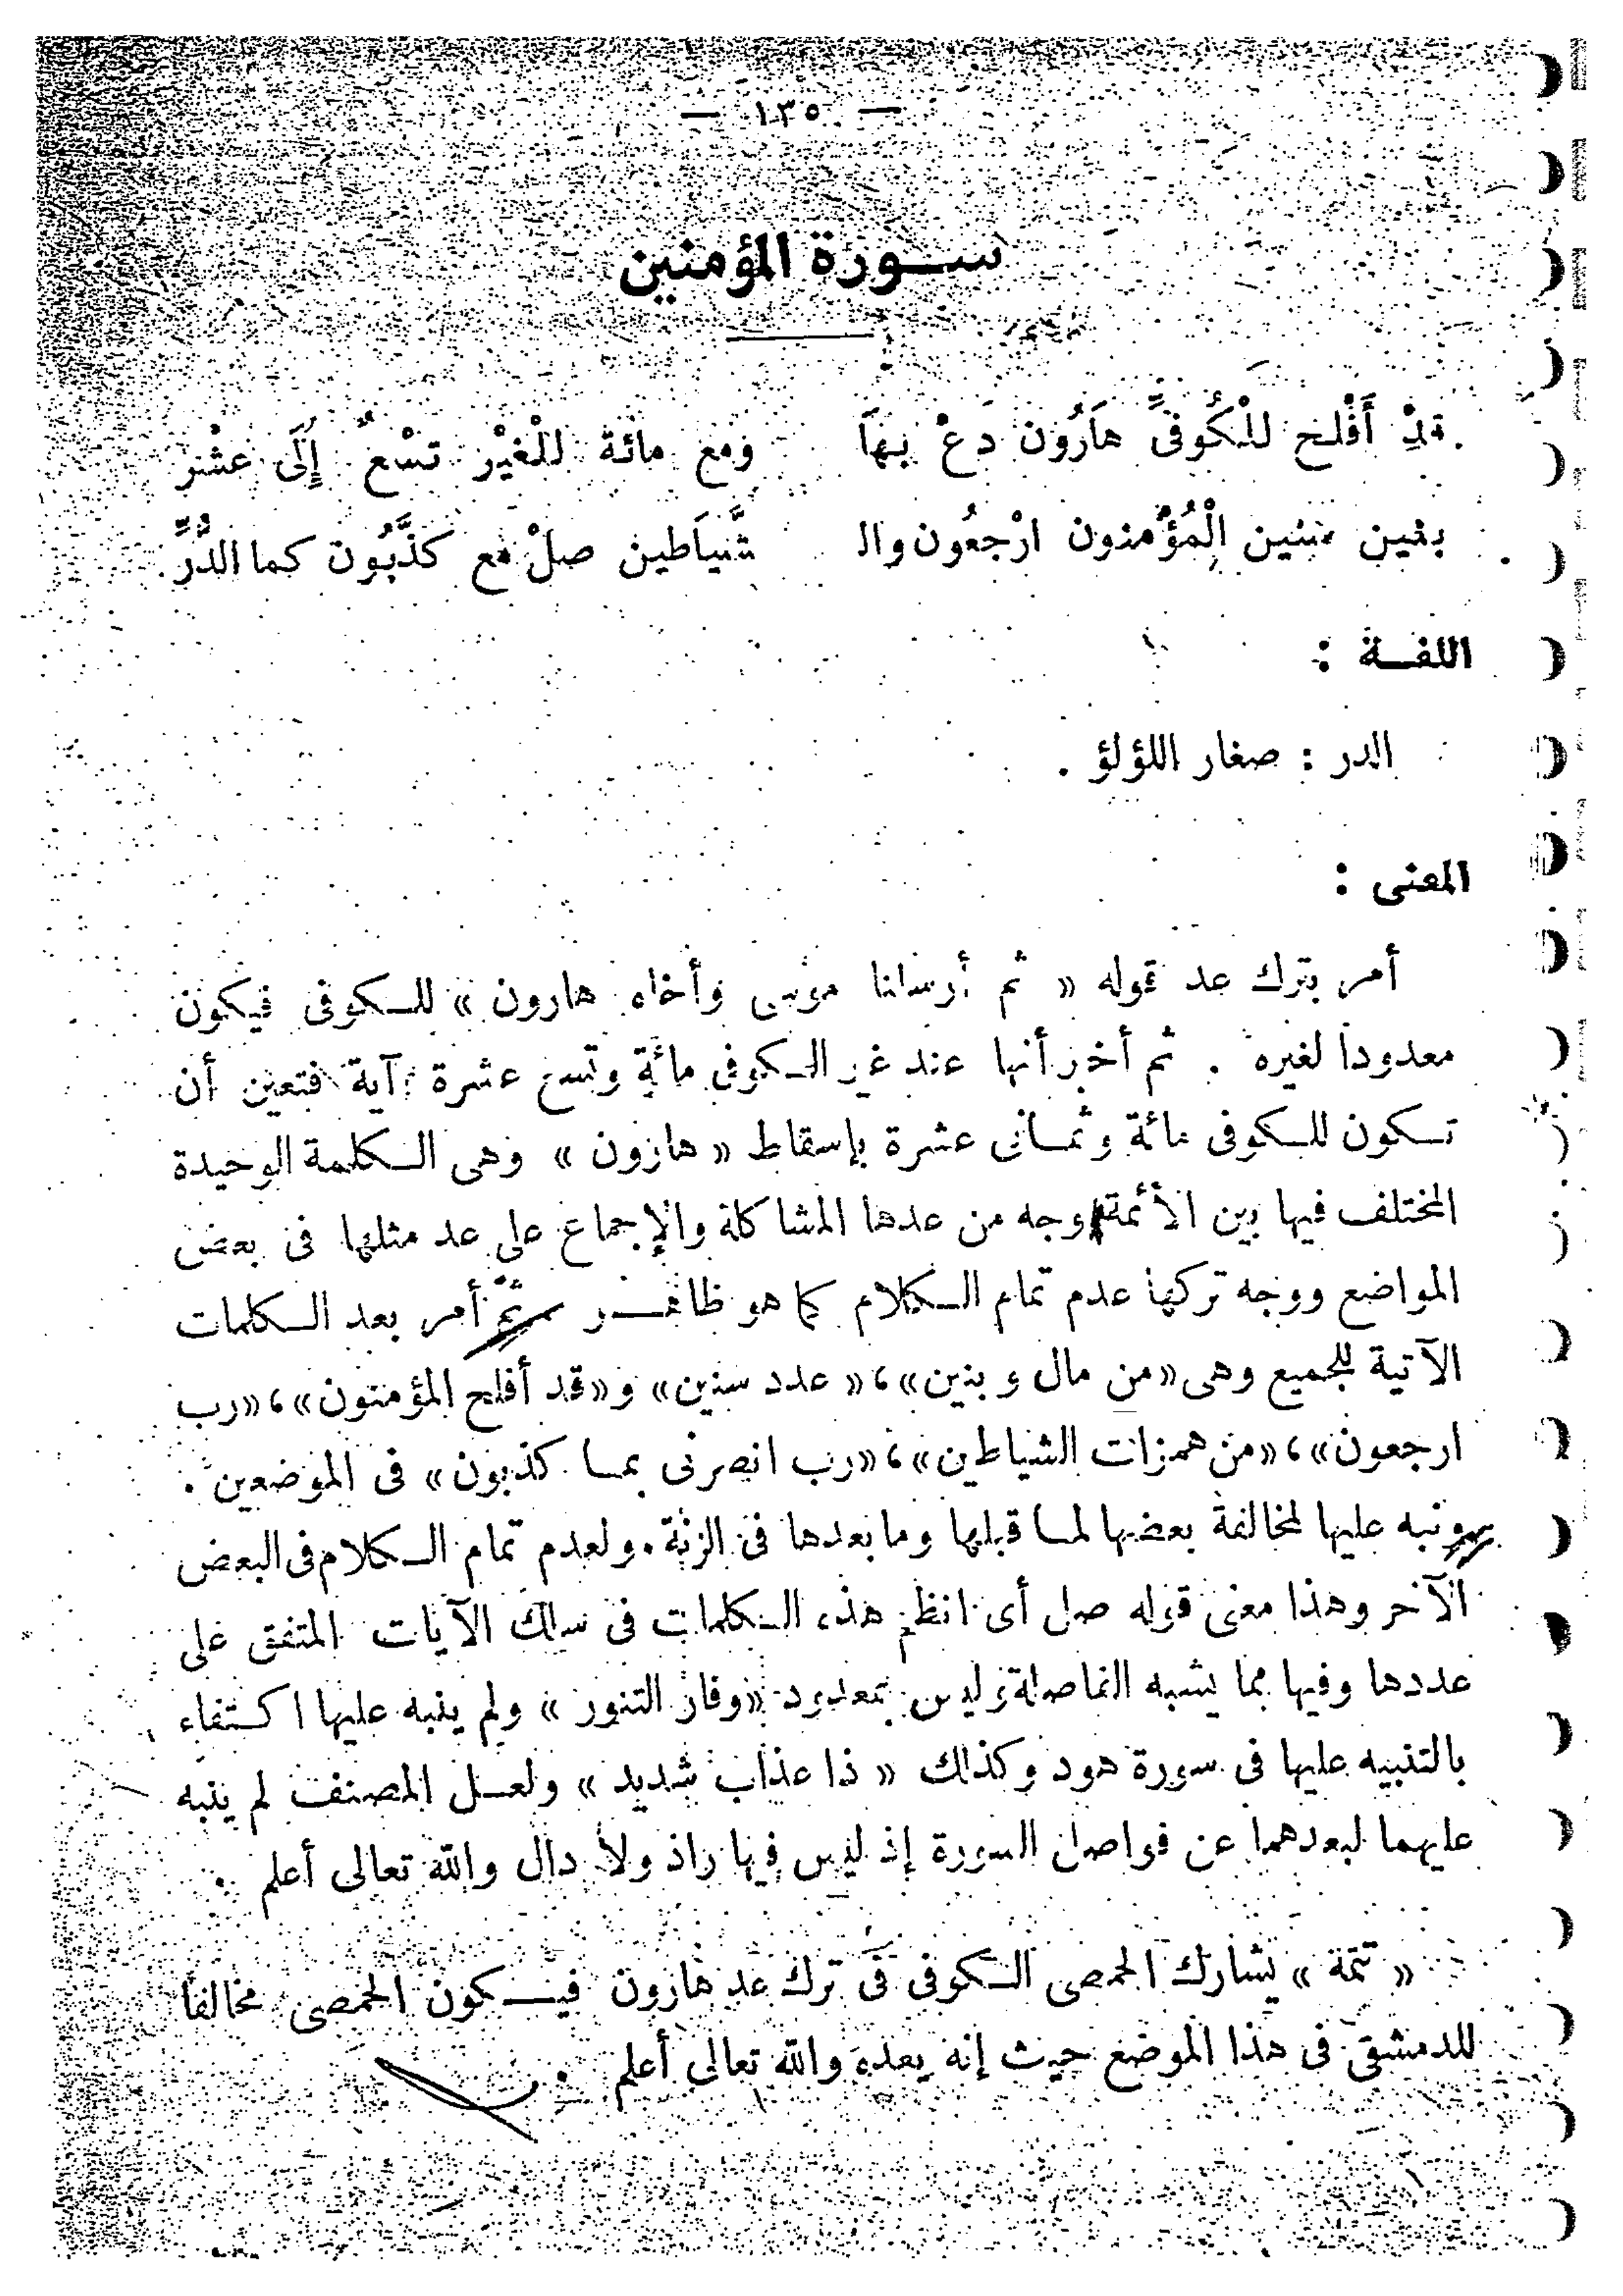 — ١٣٥ —
ســورة المؤمنين
قدْ أَفْلح للْكُوفىِّ هاَرُون دَعْ بهاَ ومع مائة للْغيْر تسْعٌ إِلَى عشْر
بنين سنين الْمُؤْمنون ارْجعُون وال شَّياَطين صلْ مع كذَّبُون كما الدُّرِّ
اللغــة :
الدر : صغار اللؤلؤ .
المعنى :
أمر بترك عد قوله « ثم أرسلنا موسى وأخاه هارون » للـكوفى فيكون
معدودا لغيره . ثم أخبر أنها عند غير الـكوفى مائة وتسع عشرة آية فتعين أن
تـكون للـكوفى مائة وثمـانى عشرة بإسقاط « هارون » وهى الـكلمة الوحيدة
المختلف فيها بين الأئمة وجه من عدها المشاكلة والإجماع على عد مثلها فى بعض
المواضع ووجه تركها عدم تمام الـكلام كما هو ظاهـر ثمّ أمر بعد الـكلمات
الآتية للجميع وهى «من مال وبنين»، « عدد سنين» و«قد أفلح المؤمنون»، «رب
ارجعون»، «من همزات الشياطين»، «رب انصرنى بمـا كذبون» فى الموضعين .
ونبه عليها لمخالفة بعضها لمـا قبلها وما بعدها فى الزنة . ولعدم تمام الـكلام فى البعض
الآخر وهذا معنى قوله صل أى انظم هذه الـكلمات فى سلك الآيات المتفق على
عددها وفيها مما يشبه الفاصلة وليس بمعدود «وفار التنور » ولم ينبه عليها اكـتفاء
بالتنبيه عليها فى سورة هود وكذلك « ذا عذاب شديد » ولعـل المصنف لم ينبه
عليهما لبعدهما عن فواصل السورة إذ ليس فيها راء ولا دال والله تعالى أعلم .
« تتمة » يشارك الحمصى الـكوفى فى ترك عد هارون فيـكون الحمصى مخالفا
للدمشقى فى هذا الموضع حيث إنه يعده والله تعالى أعلم .